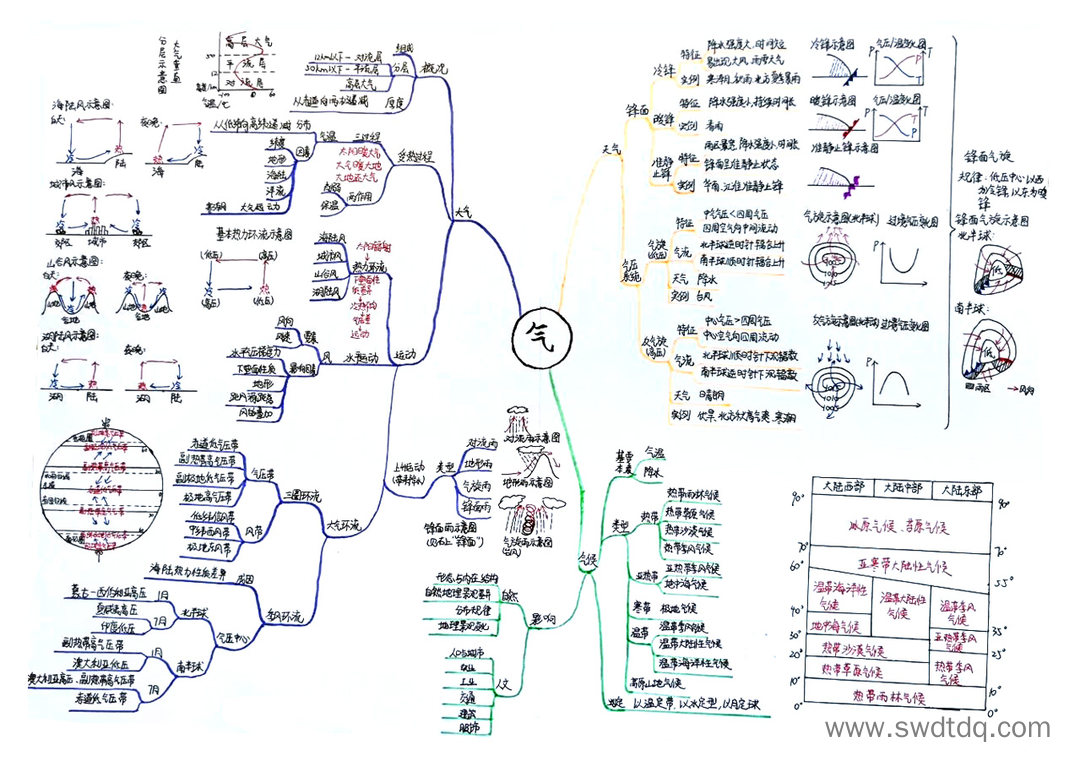 气
大气
概况
组成
分层
12km以下-对流层
50km以下-平流层
高层大气
厚度
从赤道向两极递减
大气垂直
分层示意图
高层大气
平流层
对流层
气温/℃
受热过程
三过程
太阳暖大地
大气还大地
两作用
保温
气温
从低纬向高纬递减
分布
因素
纬度
地形
海陆
洋流
影响
大气运动
海陆风示意图:
白天:
夜晚:
冷
热
海
陆
城市风示意图:
郊区
城市
郊区
山谷风示意图:
白天:
夜晚:
山坡
谷地
湖陆风示意图:
白天:
夜晚:
湖
陆
基本热力环流示意图
(低压)
(高压)
冷
热
(高压)
(低压)
运动
热力环流
海陆风
城市风
山谷风
湖陆风
太阳辐射
运动
水平运动
风
要素
风向
风速
影响因素
水平气压梯度力
下垫面性质
地形
上升运动
(带来降水)
类型
对流雨
地形雨
气旋雨
锋面雨
对流雨示意图
地形雨示意图
气旋雨示意图
(台风)
锋面雨示意图
(见右上"锋面")
大气环流
三圈环流
气压带
赤道低气压带
副热带高气压带
副极地低气压带
极地高气压带
风带
低纬信风带
中纬西风带
极地东风带
季风环流
成因
海陆热力性质差异
气压中心
北半球
1月
蒙古-西伯利亚高压
7月
夏威夷高压
印度低压
南半球
1月
副热带高气压带
澳大利亚低压
7月
澳大利亚高压、副热带高气压带
赤道低气压带
天气
锋面
冷锋
特征
降水强度大,时间短
易出现大风、雨雪天气
实例
寒潮、北方夏季暴雨
暖锋
特征
降水强度小,持续时间长
实例
春雨
准静止锋
特征
雨区最宽,降水强度小,时间长
锋面呈准静止状态
实例
华南、江淮准静止锋
冷锋示意图
气压/温变化图
暖锋示意图
气压/温变化图
准静止锋示意图
P
T
锋面气旋
规律:低压中心以西
为冷锋,以东为暖
锋
锋面气旋示意图
北半球:
低
南半球:
低
雨区
→风向
气压系统
气旋
(低压)
特征
中心气压<四周气压
四周空气向中间流动
气流
北半球逆时针辐合上升
南半球顺时针辐合上升
天气
降水
实例
台风
气旋示意图(北半球)
过境气压变化图
反气旋
(高压)
特征
中心气压>四周气压
中心空气向四周流动
气流
北半球顺时针下沉辐散
南半球逆时针下沉辐散
天气
晴朗
实例
伏旱、北方秋高气爽、寒潮
反气旋示意图(北半球)
过境气压变化图
1010
1005
气候
基本要素
气温
降水
类型
热带
热带雨林气候
热带草原气候
热带沙漠气候
热带季风气候
亚热带
亚热带季风气候
地中海气候
寒带
极地气候
温带
温带季风气候
温带大陆性气候
温带海洋性气候
高原山地气候
判定
以温定带,以水定型,以月定球
影响
自然
形态与内在结构
自然地理景观要素
分布规律
人文
人口与城市
农业
工业
交通
建筑
服饰
大陆西部
大陆中部
大陆东部
冰原气候、苔原气候
亚寒带大陆性气候
温带海洋性
气候
温带大陆性
气候
温带季风
气候
地中海气候
亚热带季风
气候
热带沙漠气候
热带草原气候
热带季风
气候
热带雨林气候
90°
70°
60°
40°
30°
20°
10°
0°
90°
70°
55°
35°
25°
10°
0°
www.swdtdq.com